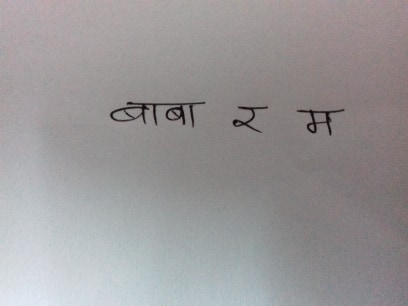 बाबा र म